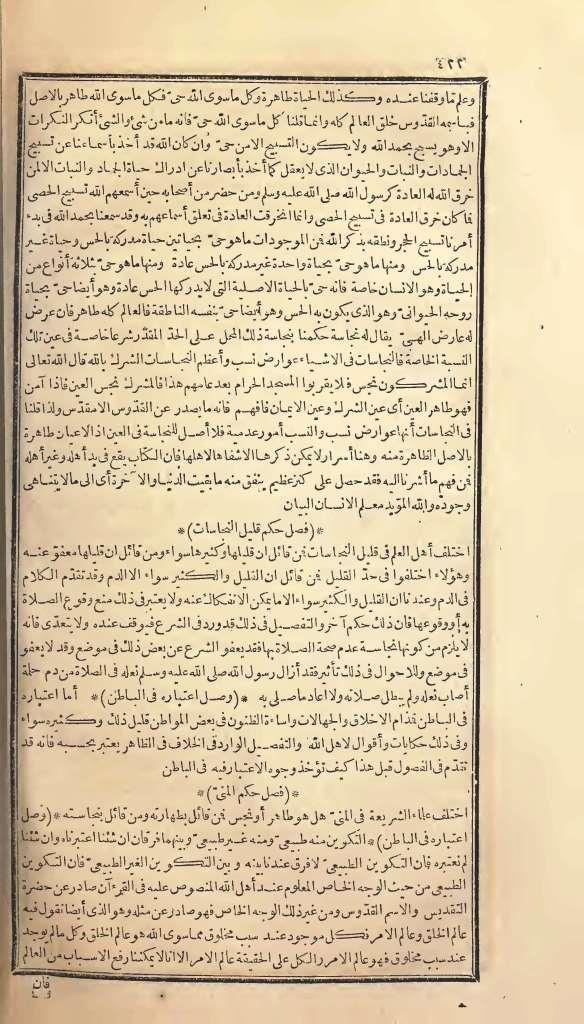 ٤٢٢
وعلم ما وقفنا عنده وكذلك الحياة طاهرة وكل ما سوى الله حىّ فكل ما سوى الله طاهر بالاصل
فباسمه القدّوس خلق العالم كله وانما قلنا كل ما سوى الله حىّ فانه ما من شئ والشئ أنكر النكرات
الا وهو يسبح بحمد الله ولا يكون التسبيح الا من حىّ وان كان الله قد أخذ بأسماعنا عن تسبيح
الجمادات والنبات والحيوان الذى لا يعقل كما أخذ بأبصارنا عن ادراك حياة الجماد والنبات الا لمن
خرق الله له العادة كرسول الله صلى الله عليه وسلم ومن حضر من أصحابه حين أسمعهم الله تسبيح الحصى
فما كان خرق العادة فى تسبيح الحصى وانما انخرقت العادة فى تعلق أسماعهم به وقد سمعنا بحمد الله فى بدء
أمرنا تسبيح الحجر ونطقه بذكر الله فمن الموجودات ما هو حىّ بحياتين حياة مدركة بالحس وحياة غير
مدركة بالحس ومنها ما هو حىّ بحياة واحدة غير مدركة بالحس عادة ومنها ما هو حىّ بثلاثة أنواع من
الحياة وهو الانسان خاصة فانه حىّ بالحياة الاصلية التى لا يدركها الحس عادة وهو أيضا حىّ بحياة
روحه الحيوانىّ وهو الذى يكون به الحس وهو أيضا حىّ بنفسه الناطقة فالعالم كله طاهر فان عرض
له عارض الهىّ يقال له نجاسة حكمنا بنجاسة ذلك المحل على الحدّ المقدّر شرعا خاصة فى عين تلك
النسبة الخاصة فالنجاسات فى الاشياء عوارض نسب وأعظم النجاسات الشرك بالله قال الله تعالى
انما المشركون نجس فلا يقربوا المسجد الحرام بعد عامهم هذا فالمشرك نجس العين فاذا آمن
فهو طاهر العين أى عين الشرك وعين الايمان فافهم فانه ما يصدر عن القدّوس الا مقدّس ولذا قلنا
فى النجاسات أنها عوارض نسب والنسب أمور عدمية فلا أصل للنجاسة فى العين اذ الاعيان طاهرة
بالاصل الظاهرة منه وهنا أسرار لا يمكن ذكرها الا شفاها لاهلها فان الكتاب يقع فى يد أهله وغير أهله
فمن فهم ما أشرنا اليه فقد حصل على كنز عظيم ينفق منه ما بقيت الدنيا والآخرة أى الى ما لا يتناهى
وجوده والله المؤيد معلم الانسان البيان
*(فصل حكم قليل النجاسات)*
اختلف أهل العلم فى قليل النجاسات فمن قائل ان قليلها وكثيرها سواء ومن قائل ان قليلها معفوّ عنه
وهؤلاء اختلفوا فى حدّ القليل فمن قائل ان القليل والكثير سواء الا الدم وقد تقدّم الكلام
فى الدم وعندنا ان القليل والكثير سواء الا ما يمكن الانفكاك عنه ولا يعتبر فى ذلك منع وقوع الصلاة
به أو وقوعها فان ذلك حكم آخر والتفصيل فى ذلك قد ورد فى الشرع فيوقف عنده ولا يتعدّى فانه
لا يلزم من كونها نجاسة عدم صحة الصلاة بها فقد يعفو الشرع عن بعض ذلك فى موضع وقد لا يعفو
فى موضع وللاحوال فى ذلك تأثير فقد أزال رسول الله صلى الله عليه وسلم نعله فى الصلاة من دم حلمة
أصاب نعله ولم يبطل صلاته ولا أعاد ما صلى به *(وصل اعتباره فى الباطن)* أما اعتباره
فى الباطن فمذامّ الاخلاق والجهالات واساءة الظنون فى بعض المواطن قليل ذلك وكثيره سواء
وفى ذلك حكايات وأقوال لاهل الله والتفصيل الوارد فى الخلاف فى الظاهر يعتبر بحسبه فانه قد
تقدّم فى الفصول قبل هذا كيف تؤخذ وجوه الاعتبار فيه فى الباطن
*(فصل حكم المنىّ)*
اختلف علماء الشريعة فى المنىّ هل هو طاهر أو نجس فمن قائل بطهارته ومن قائل بنجاسته *(وصل
اعتباره فى الباطن)* التكوين منه طبيعىّ ومنه غير طبيعىّ وبينهما فرقان ان شئنا اعتبرناه وان شئنا
لم نعتبره فان التكوين الطبيعىّ لا فرق عندنا بينه وبين التكوين الغير الطبيعىّ فان التكوين
الطبيعى من حيث الوجه الخاص المعلوم عند أهل الله المنصوص عليه فى القرآن صادر عن حضرة
التقديس والاسم القدّوس ومن غير ذلك الوجه الخاص فهو صادر عن مثله وهو الذى أيضا نقول فيه
عالم الخلق وعالم الامر فكل موجود عند سبب مخلوق مما سوى الله هو عالم الخلق وكل ما لم يوجد
عند سبب مخلوق فهو عالم الامر والكل على الحقيقة عالم الامر الا انا لا يمكننا رفع الاسباب من العالم
فان